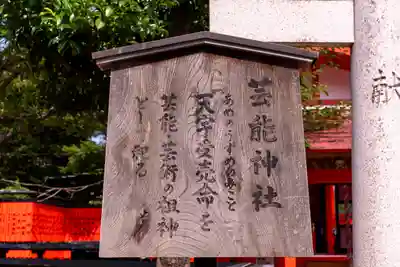 芸能神社
あめのうずめのみこと
天宇受売命を
芸能芸術の祖神
として仰ぐ
献